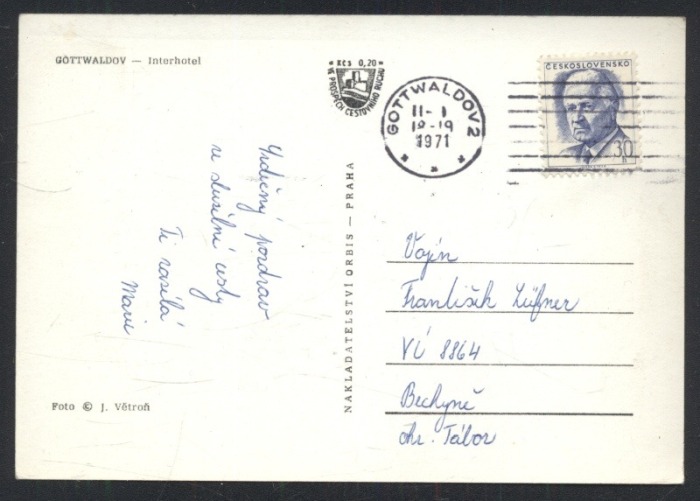 GOTTWALDOV — Interhotel
Kčs 0,20
VE PROSPĚCH CESTOVNÍHO RUCHU
GOTTWALDOV 2
11-1
18-19
1971
ČESKOSLOVENSKO
30
h
Srdečný pozdrav
ze služební cesty
Ti zasílá
Marie
NAKLADATELSTVÍ ORBIS — PRAHA
Vojín
František
VÚ 8864
Bechyně
okr. Tábor
Foto © J. Větroň